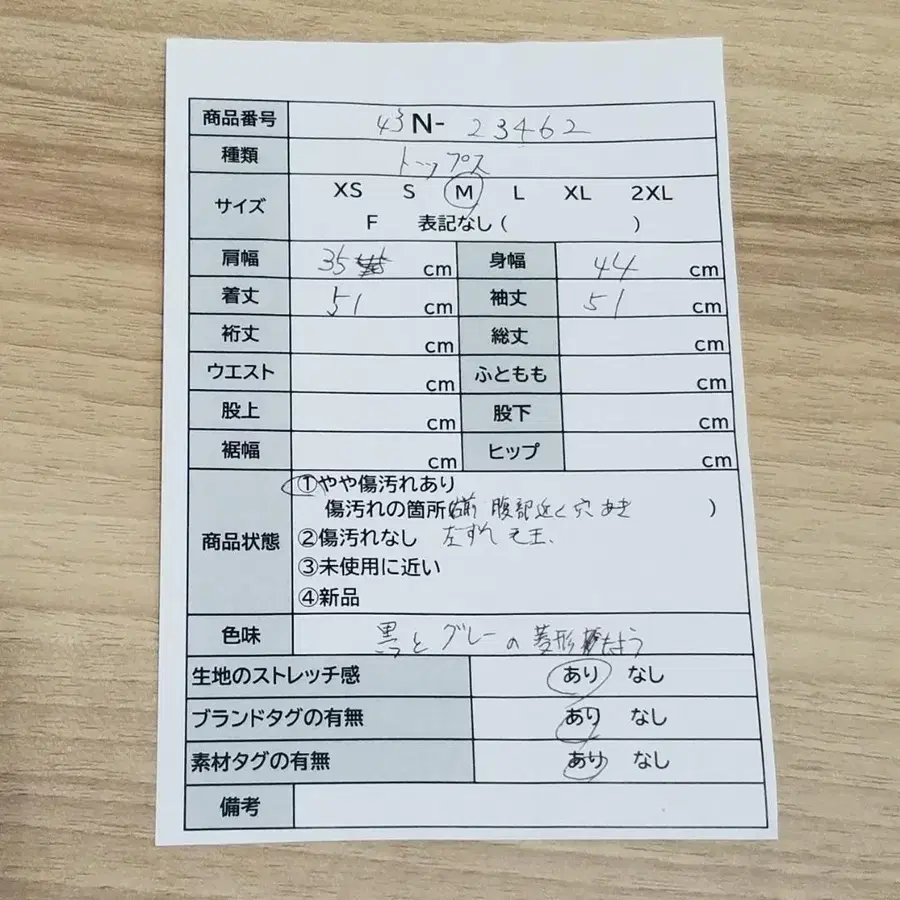 商品番号 43 N- 23462
種類 トップス
サイズ XS S M L XL 2XL
F 表記なし ( )
肩幅 35 cm 身幅 44 cm
着丈 51 cm 袖丈 51 cm
裄丈 cm 総丈 cm
ウエスト cm ふともも cm
股上 cm 股下 cm
裾幅 cm ヒップ cm
商品状態 ①やや傷汚れあり
傷汚れの箇所( 腹部近く穴あき )
②傷汚れなし 左すれ毛玉、
③未使用に近い
④新品
色味 黒とグレーの菱形もよう
生地のストレッチ感 あり なし
ブランドタグの有無 あり なし
素材タグの有無 あり なし
備考